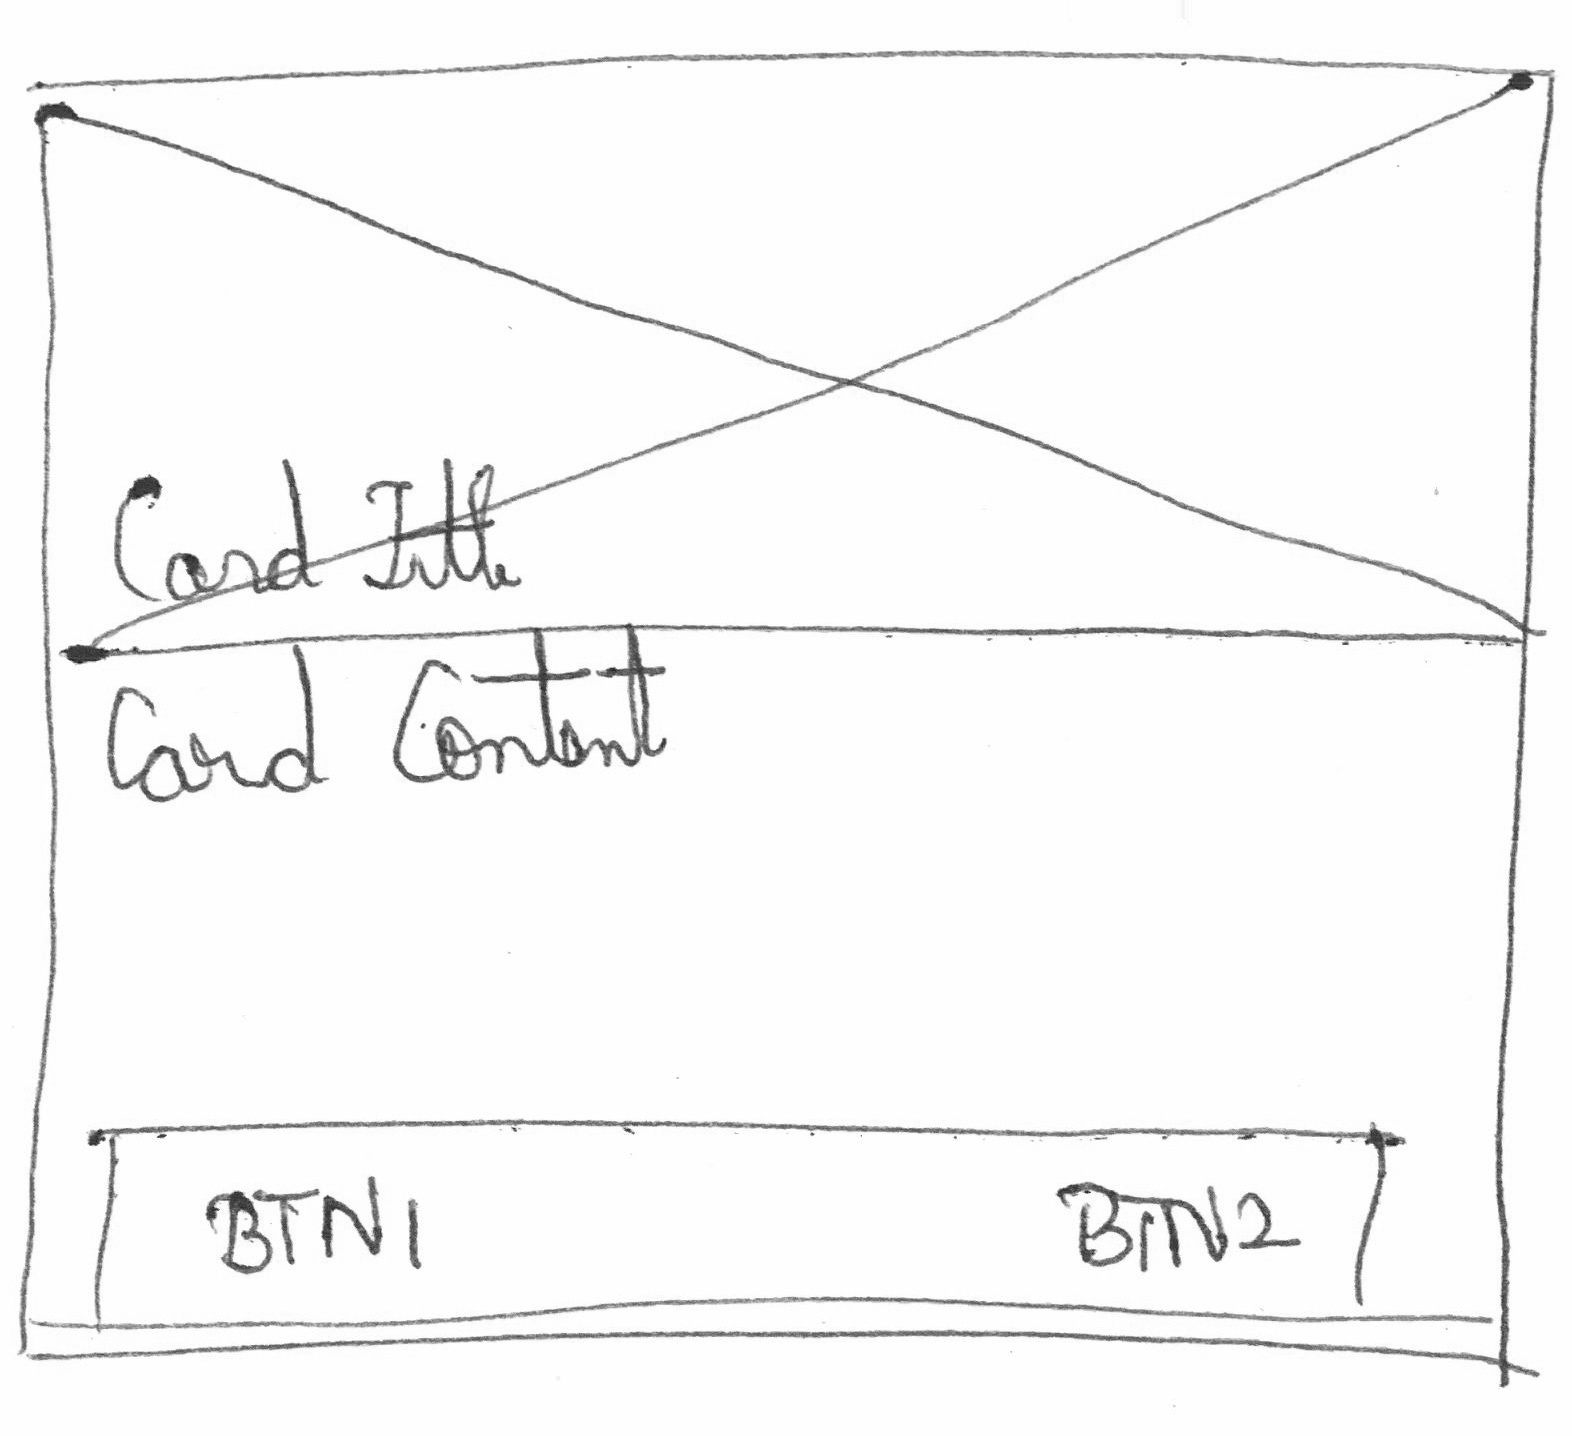 Card Title
Card Content
BTN1 BTN2